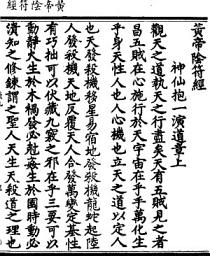 黃帝陰符經
黃帝陰符經
神仙抱一演道章上
觀天之道執天之行盡矣天有五賊見之者
昌五賊在心施行於天宇宙在乎手萬化生
乎身天性人也人心機也立天之道以定人
也天發殺機移星易宿地發殺機龍蛇起陸
人發殺機天地反覆天人合發萬變定基性
有巧拙可以伏藏九竅之邪在乎三要可以
動靜火生於木禍發必剋姦生於國時動必
潰知之修鍊謂之聖人天生天殺道之理也